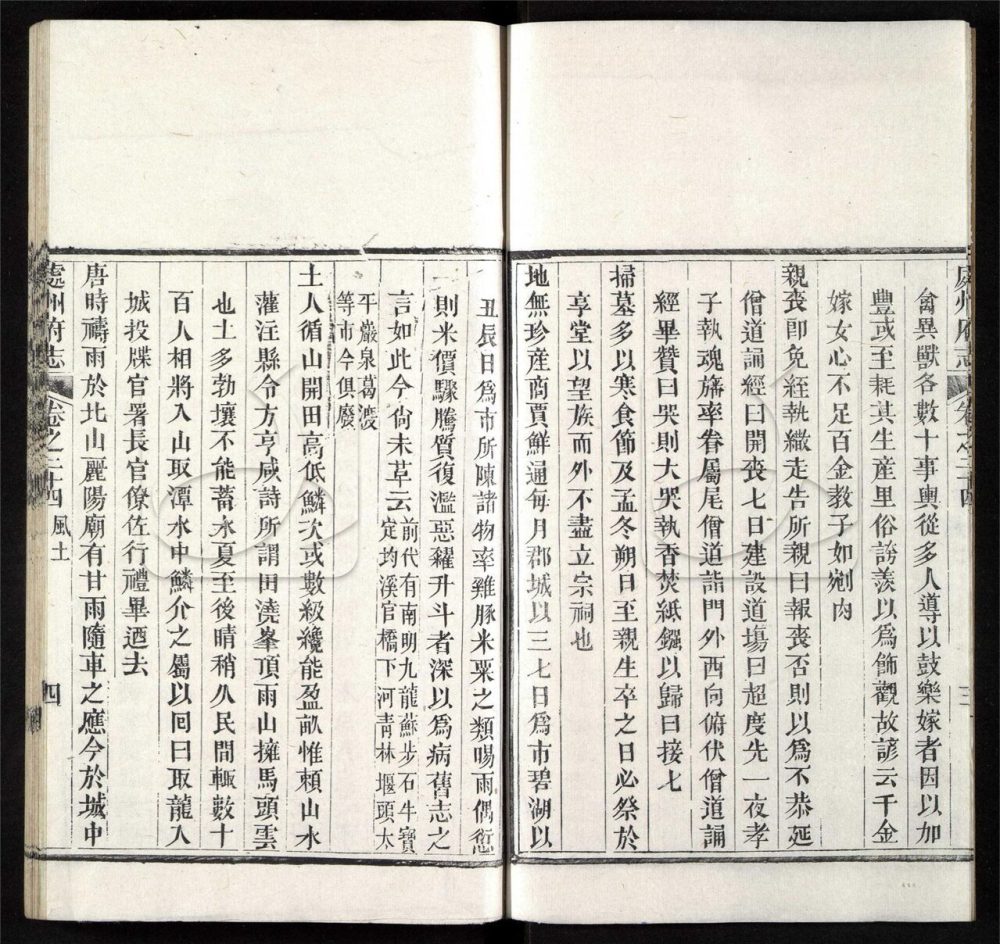 處州府志　卷之二十四　三
禽異獸各數十事輿從多人導以鼓樂嫁者因以加
豐或至耗其生產里俗誇羨以爲飾觀故諺云千金
嫁女心不足百金教子如剜肉
親喪卽免絰執繖走告所親曰報喪否則以爲不恭延
僧道誦經曰開喪七日建設道塲曰超度先一夜孝
子執魂旛率眷屬尾僧道詣門外西向俯伏僧道誦
經畢贊曰哭則大哭執香焚紙鏹以歸曰接七
掃墓多以寒食節及孟冬朔日至親生卒之日必祭於
享堂以望族而外不盡立宗祠也
地無珍産商賈鮮通每月郡城以三七日爲市碧湖以
丑辰日爲市所陳諸物率雞豚米粟之類暘雨偶愆
則米價驟騰質復濫惡糴升斗者深以爲病舊志之
言如此今尙未革云前代有南明九龍蘇步石牛寶
定均溪官橋下河靑林堰頭太
平巖泉葛渡
等市今俱廢
土人循山開田高低鱗次或數級纔能盈畝惟賴山水
灌注縣令方亨咸詩所謂田澆峯頂雨山擁馬頭雲
也土多勃壤不能蓄水夏至後晴稍久民間輒數十
百人相將入山取潭水中鱗介之屬以回曰取龍入
城投牒官署長官僚佐行禮畢迺去
唐時禱雨於北山麗陽廟有甘雨隨車之應今於城中
處州府志　卷之二十四　風土　四